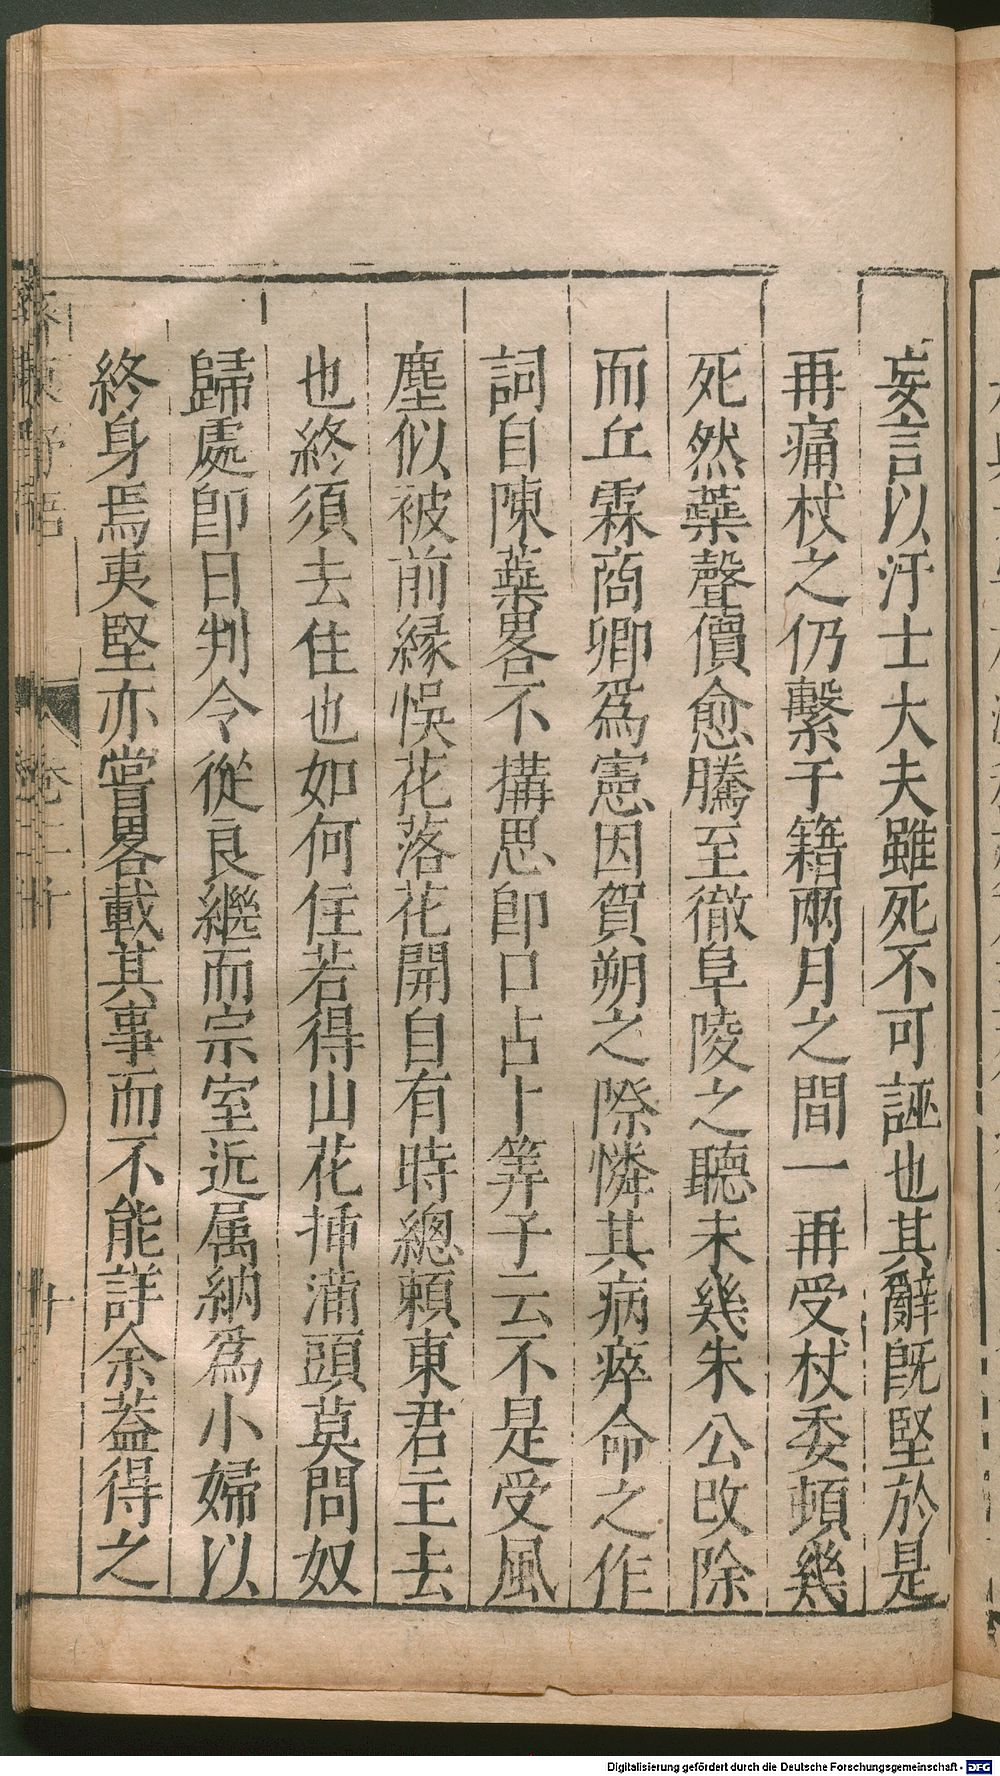 妄言以汙士大夫雖死不可誣也其辭旣堅於是
再痛杖之仍繫于籍兩月之間一再受杖委頓幾
死然蘂聲價愈騰至徹阜陵之聽未幾朱公改除
而丘霖商卿爲憲因賀朔之際憐其病瘁命之作
詞自陳蘂畧不搆思卽口占卜筭子云不是受風
塵似被前緣悞花落花開自有時總頼東君主去
也終須去住也如何住若得山花揷滿頭莫問奴
歸處卽日判令從良繼而宗室近属納爲小婦以
終身焉夷堅亦嘗畧載其事而不能詳余葢得之
齊東野語
卷二十
十
Digitalisierung gefördert durch die Deutsche Forschungsgemeinschaft - DFG